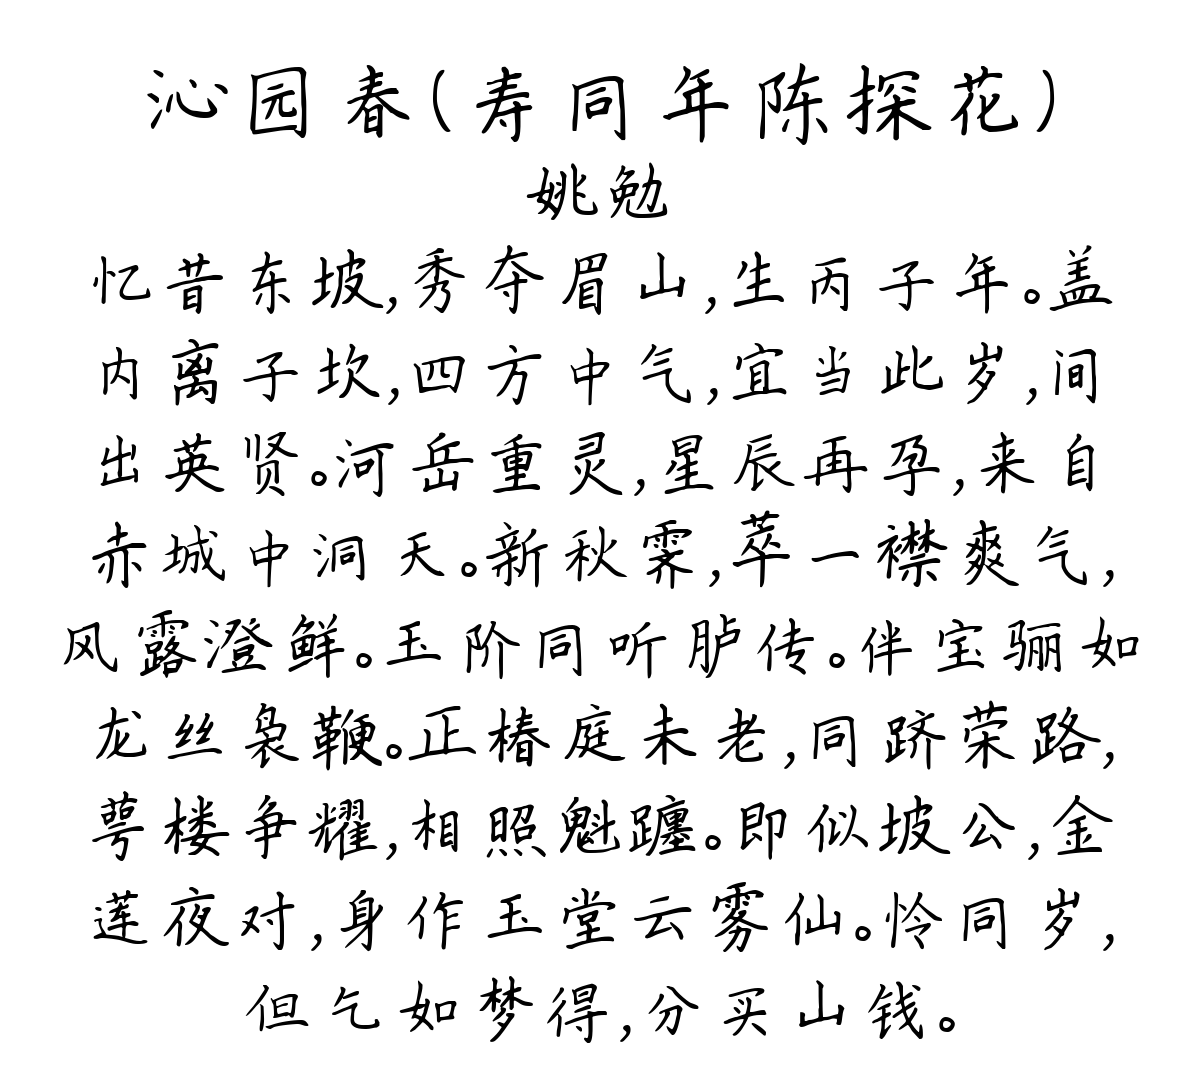 沁园春(寿同年陈探花)
姚勉
忆昔东坡,秀夺眉山,生丙子年。盖
内离子坎,四方中气,宜当此岁,间
出英贤。河岳重灵,星辰再孕,来自
赤城中洞天。新秋霁,萃一襟爽气,
风露澄鲜。玉阶同听胪传。伴宝骊如
龙丝袅鞭。正椿庭未老,同跻荣路,
萼楼争耀,相照魁躔。即似坡公,金
莲夜对,身作玉堂云雾仙。怜同岁,
但乞如梦得,分买山钱。